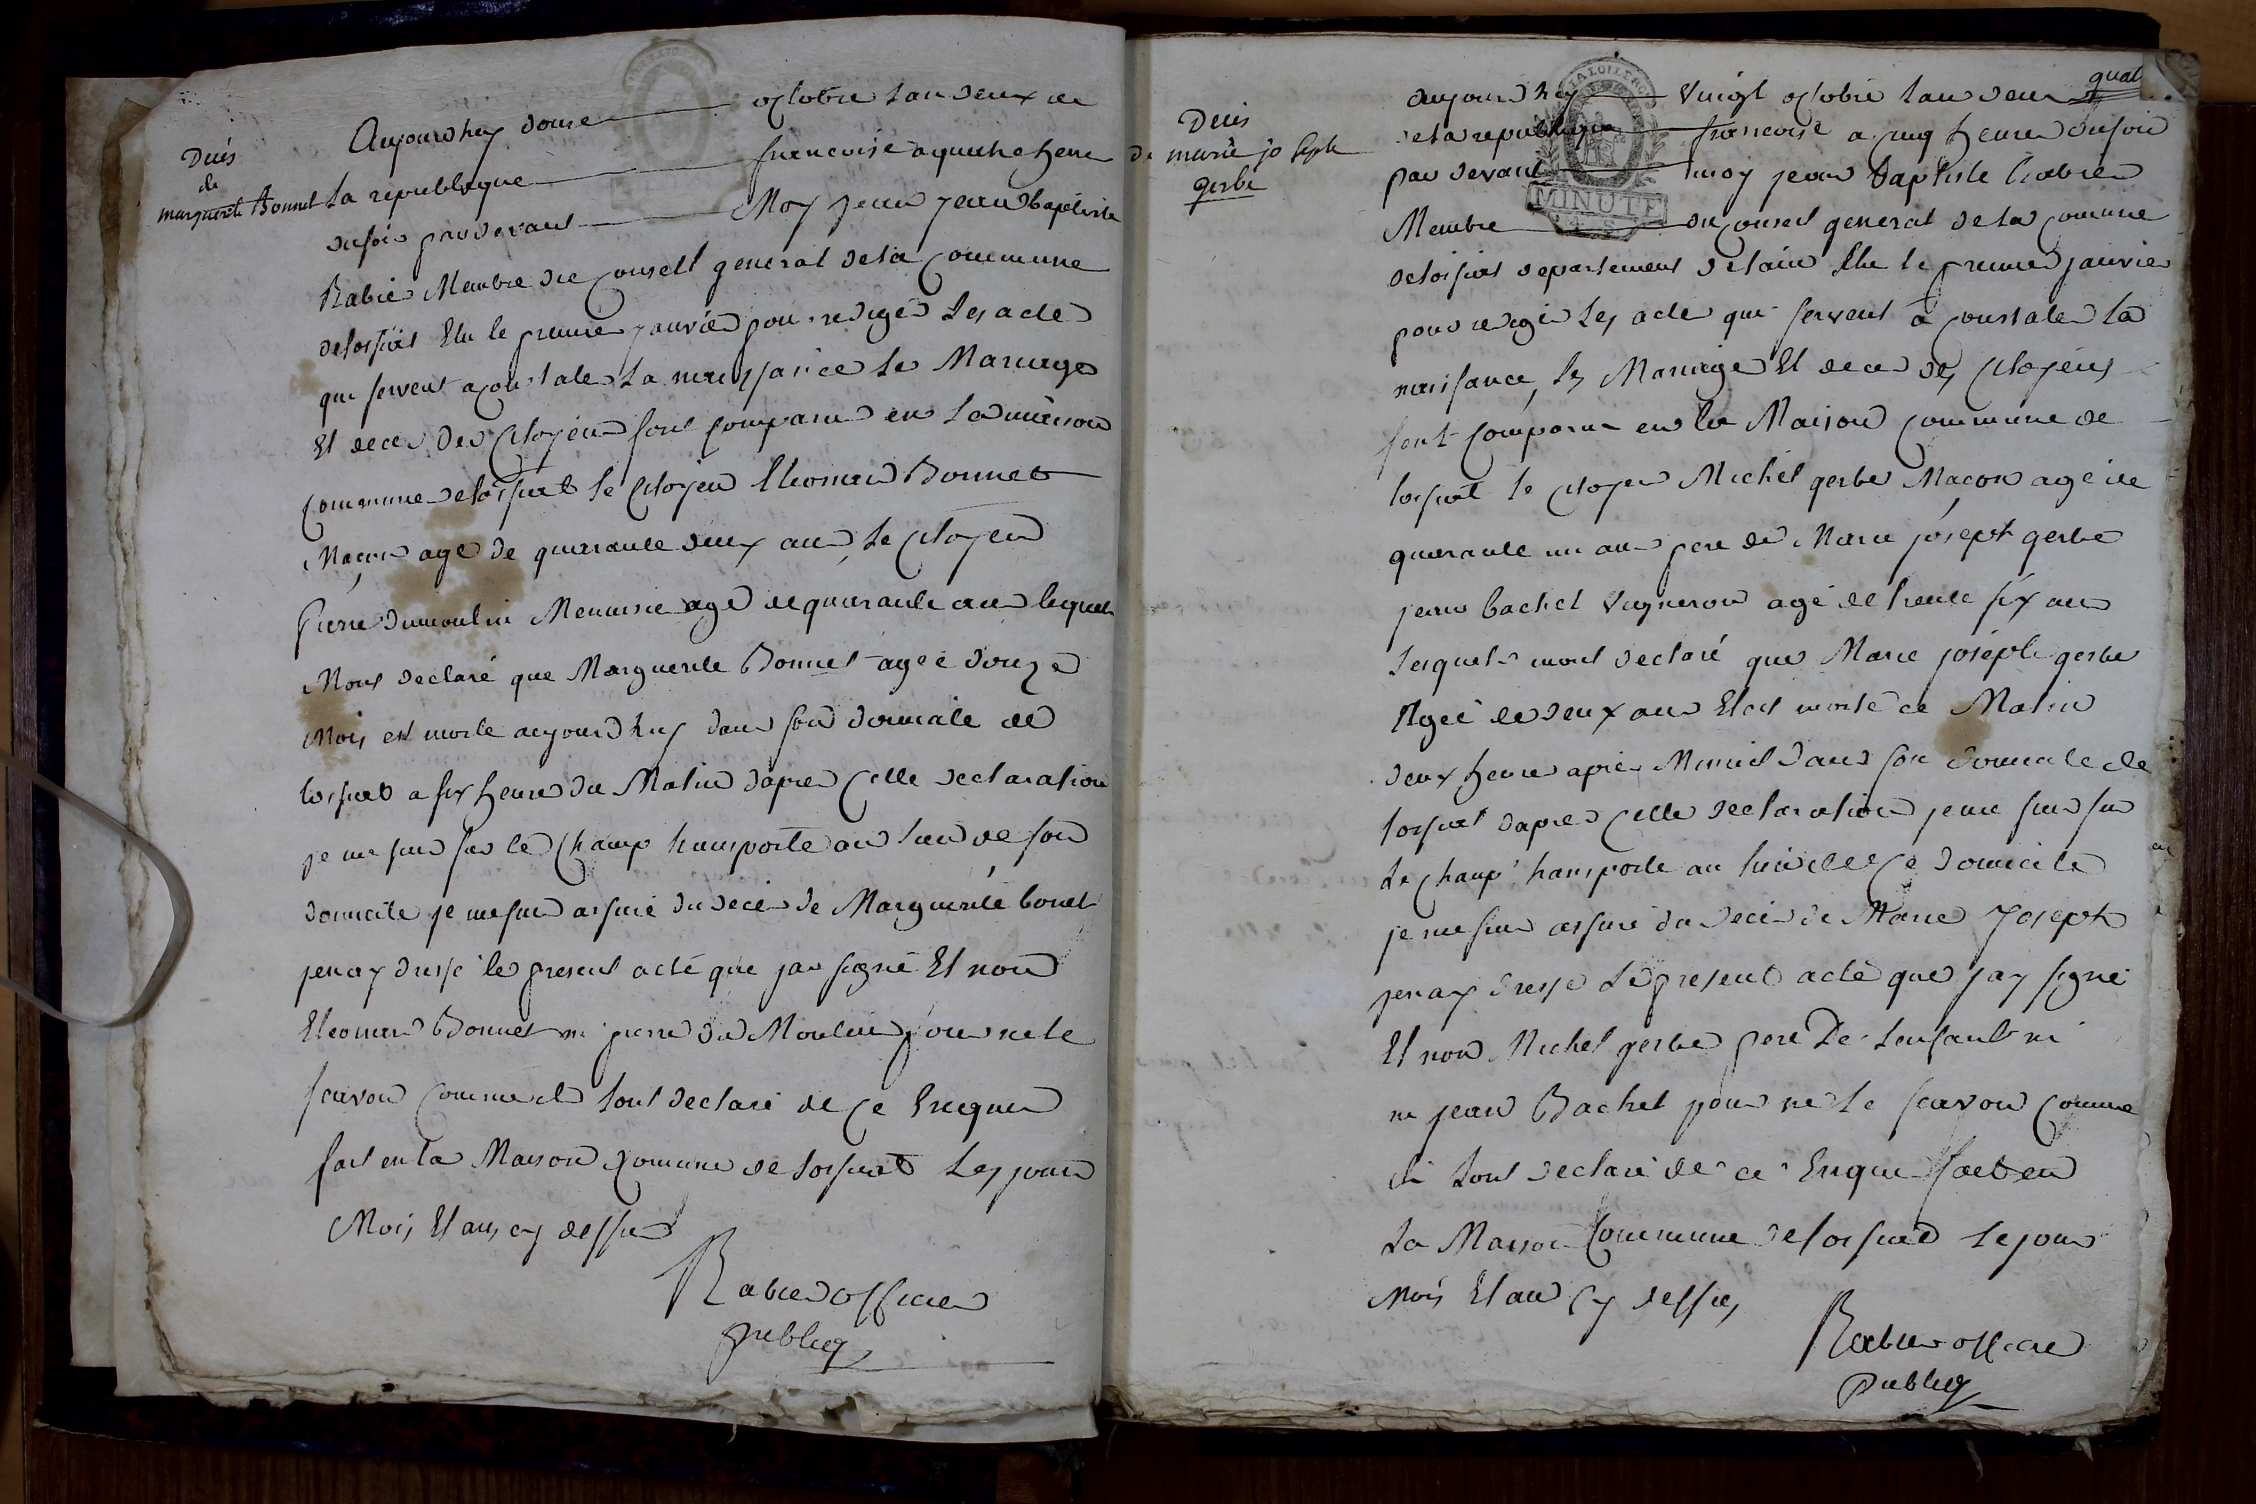 Decés
de
marguerite Bonnet
Aujourdhuy douse octobre lan deux de
La republique francoise a quatre heure
du soir par devant Moy jean jean baptiste
Rabier Membre du Conseil general de la Commune
de loisiat Elu le premier janvier pour rediger Les acte
qui servent a constater La naissance Le Mariage
Et deces Des Citoyens sont comparu en La maison
Commune de loisiat le Citoyen Eleonard Bonnet
Maçon age de quarante deux ans, Le Citoyen
Pierre Dumoulin Menuisie age de quarante ans lequels
Mont declaré que Marguerite Bonnet agée douze
Mois est morte aujourdhuy dans son domicile de
loisiat a six heure du Matin dapres Cette declaration
je me suis sur le Champ transporte au lieu de son
domicile je me suis assuré du decés de Marguerite bonet
jen ay dressé le present acte que jai signé Et non
Eleonard Bonnet ni pierre du Moulin pour ne le
scavoir comme ils lont declaré de ce Enquis
fait en la Maison Comune de loisiat Les jour
Mois Et ans cy dessus
Rabier officier
publicq
quat
Decés
de marie joseph
gerbe
aujourdhuy Vingt octobre lan deux
de la republique francoise a cinq heure du soir
par devant moy jean Baptiste Rabier
Membre du Conseil general de la Commune
MINUTE
de loisiat departement de lain Elu le premier janvier
pour rediger Les acte qui servent à constater La
naissance, Les Mariage Et deces des Citoyens
sont Comparu en la Maison Commune de
loisiat le Citoyen Michel gerbe Macon agé de
quarante un ans pere de Marie joseph gerbe
jean bachet Vigneron agé de trente six ans
Lesquels mont declaré que Marie joseph gerbe
Agée de deux ans Etoit morte ce Matin
deux heure apres Minuit dans son domicile de
loisiat dapres Cette declaration je me suis sur
Le Champ transporte au lieu de Ce domicile
je me suis assuré du decés de Marie Joseph
jen ay dressé Le present acte que jay signé
Et non Michel gerbe pere De Lenfant ni
ni jean Bachet pour ne le scavoir Comme
ils lont declaré de ce Enquis fait en
La Maison Commune de loisiat Le jour
Mois Et an Cy dessus
Rabier officier
publicq